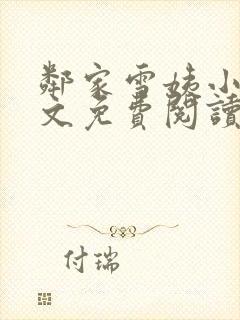 鄰家雪姨小
文免費閱讀
付瑞